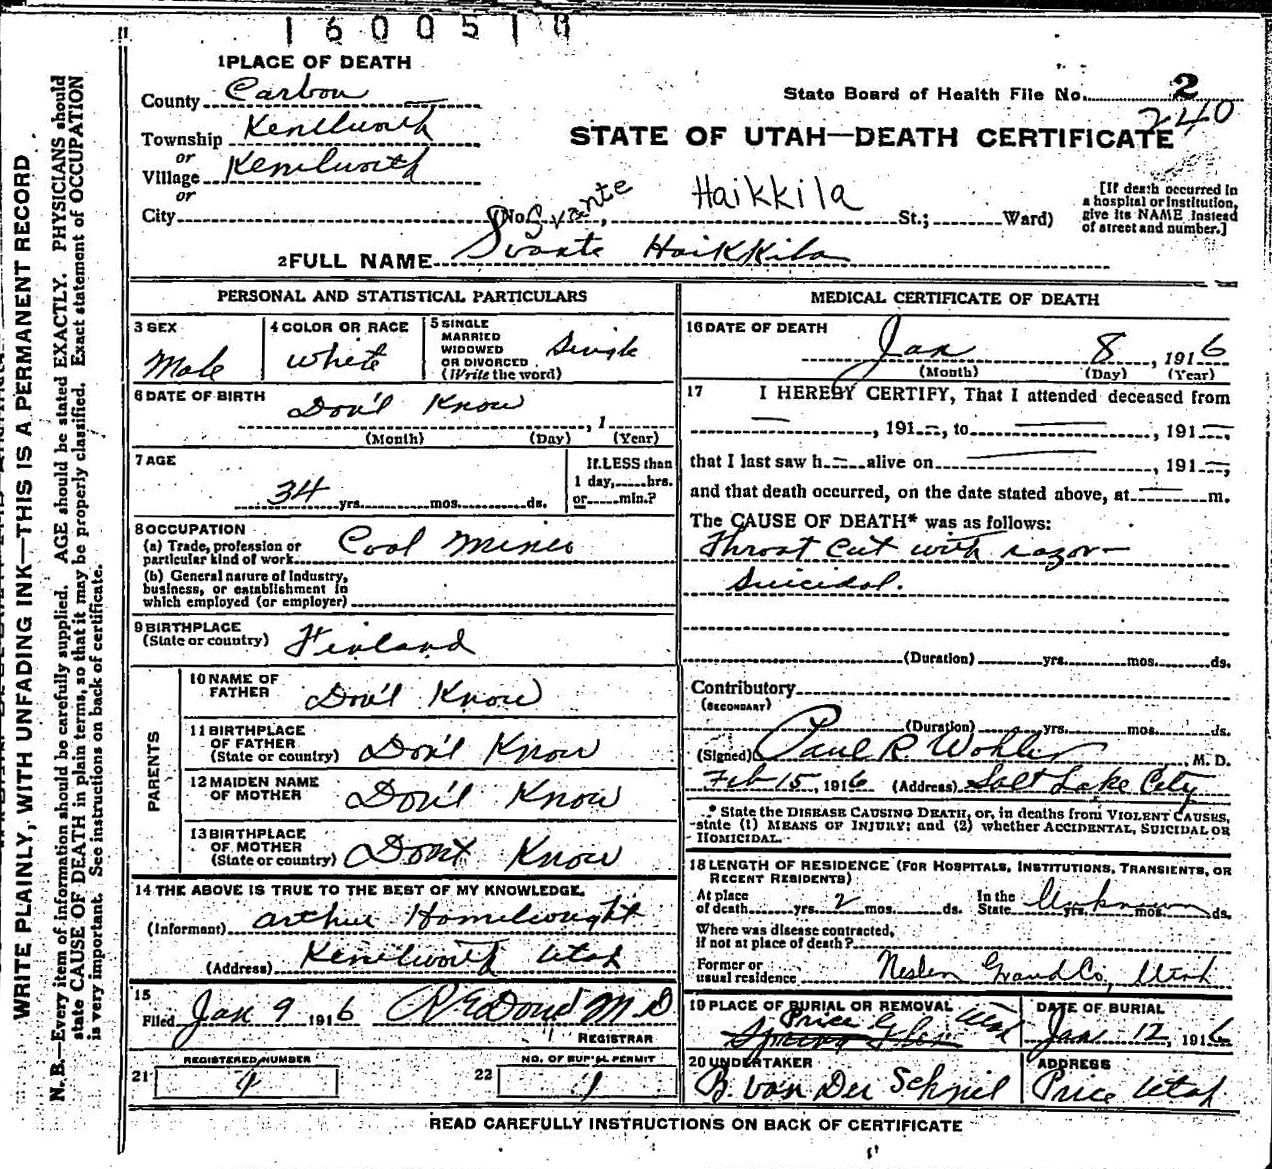 1600510
1 PLACE OF DEATH
County Carbon
State Board of Health File No. 2
240
Township Kenilworth
or
STATE OF UTAH—DEATH CERTIFICATE
Village Kenilworth
or
City (No. Svante Haikkila St.; Ward)
[If death occurred in a hospital or institution, give its NAME instead of street and number.]
2 FULL NAME Svante Haikkila
PERSONAL AND STATISTICAL PARTICULARS
3 SEX
Male
4 COLOR OR RACE
White
5 SINGLE MARRIED WIDOWED OR DIVORCED (Write the word)
Single
6 DATE OF BIRTH
Don't Know , 1
(Month) (Day) (Year)
7 AGE
34 yrs. mos. ds.
If LESS than 1 day, hrs. or min.?
8 OCCUPATION
(a) Trade, profession or particular kind of work Coal Miner
(b) General nature of industry, business, or establishment in which employed (or employer)
9 BIRTHPLACE
(State or country) Finland
PARENTS
10 NAME OF FATHER Don't Know
11 BIRTHPLACE OF FATHER (State or country) Don't Know
12 MAIDEN NAME OF MOTHER Don't Know
13 BIRTHPLACE OF MOTHER (State or country) Don't Know
14 THE ABOVE IS TRUE TO THE BEST OF MY KNOWLEDGE.
(Informant) Arthur
(Address) Kenilworth Utah
15
Filed Jan 9 1916 M.D
REGISTRAR
REGISTERED NUMBER
21 1
NO. OF BURIAL PERMIT
22 1
MEDICAL CERTIFICATE OF DEATH
16 DATE OF DEATH
Jan 8 , 1916
(Month) (Day) (Year)
17 I HEREBY CERTIFY, That I attended deceased from
— , 191—, to — , 191—,
that I last saw h— alive on — , 191—,
and that death occurred, on the date stated above, at — m.
The CAUSE OF DEATH* was as follows:
Throat cut with razor—
Suicidal.
(Duration) yrs. mos. ds.
Contributory
(SECONDARY)
(Duration) yrs. mos. ds.
(Signed) Paul R. , M. D.
Feb 15, 1916 (Address) Salt Lake City
* State the DISEASE CAUSING DEATH, or, in deaths from VIOLENT CAUSES, state (1) MEANS OF INJURY; and (2) whether ACCIDENTAL, SUICIDAL OR HOMICIDAL.
18 LENGTH OF RESIDENCE (FOR HOSPITALS, INSTITUTIONS, TRANSIENTS, OR RECENT RESIDENTS)
At place of death yrs. 2 mos. ds. In the State Unknown yrs. mos. ds.
Where was disease contracted, if not at place of death?
Former or usual residence Neslen Grand Co, Utah
19 PLACE OF BURIAL OR REMOVAL
Price Utah
DATE OF BURIAL
Jan. 12, 1916
20 UNDERTAKER
B. Van Der
ADDRESS
Price Utah
READ CAREFULLY INSTRUCTIONS ON BACK OF CERTIFICATE
WRITE PLAINLY, WITH UNFADING INK—THIS IS A PERMANENT RECORD
N. B.—Every item of information should be carefully supplied. AGE should be stated EXACTLY. PHYSICIANS should
state CAUSE OF DEATH in plain terms, so that it may be properly classified. Exact statement of OCCUPATION
is very important. See instructions on back of certificate.